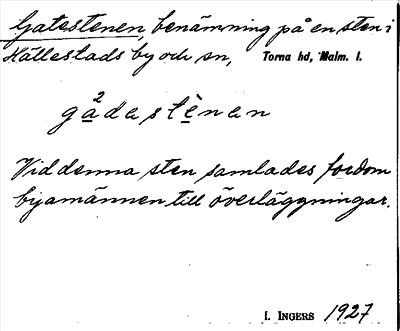 Gatestenen, benämning på en sten i
Hällestads by och sn, Torna hd, Malm. l.
gạ²dastẹ̀nan
Vid denna sten samlades fordom
byamännen till överläggningar.
I. INGERS 1927